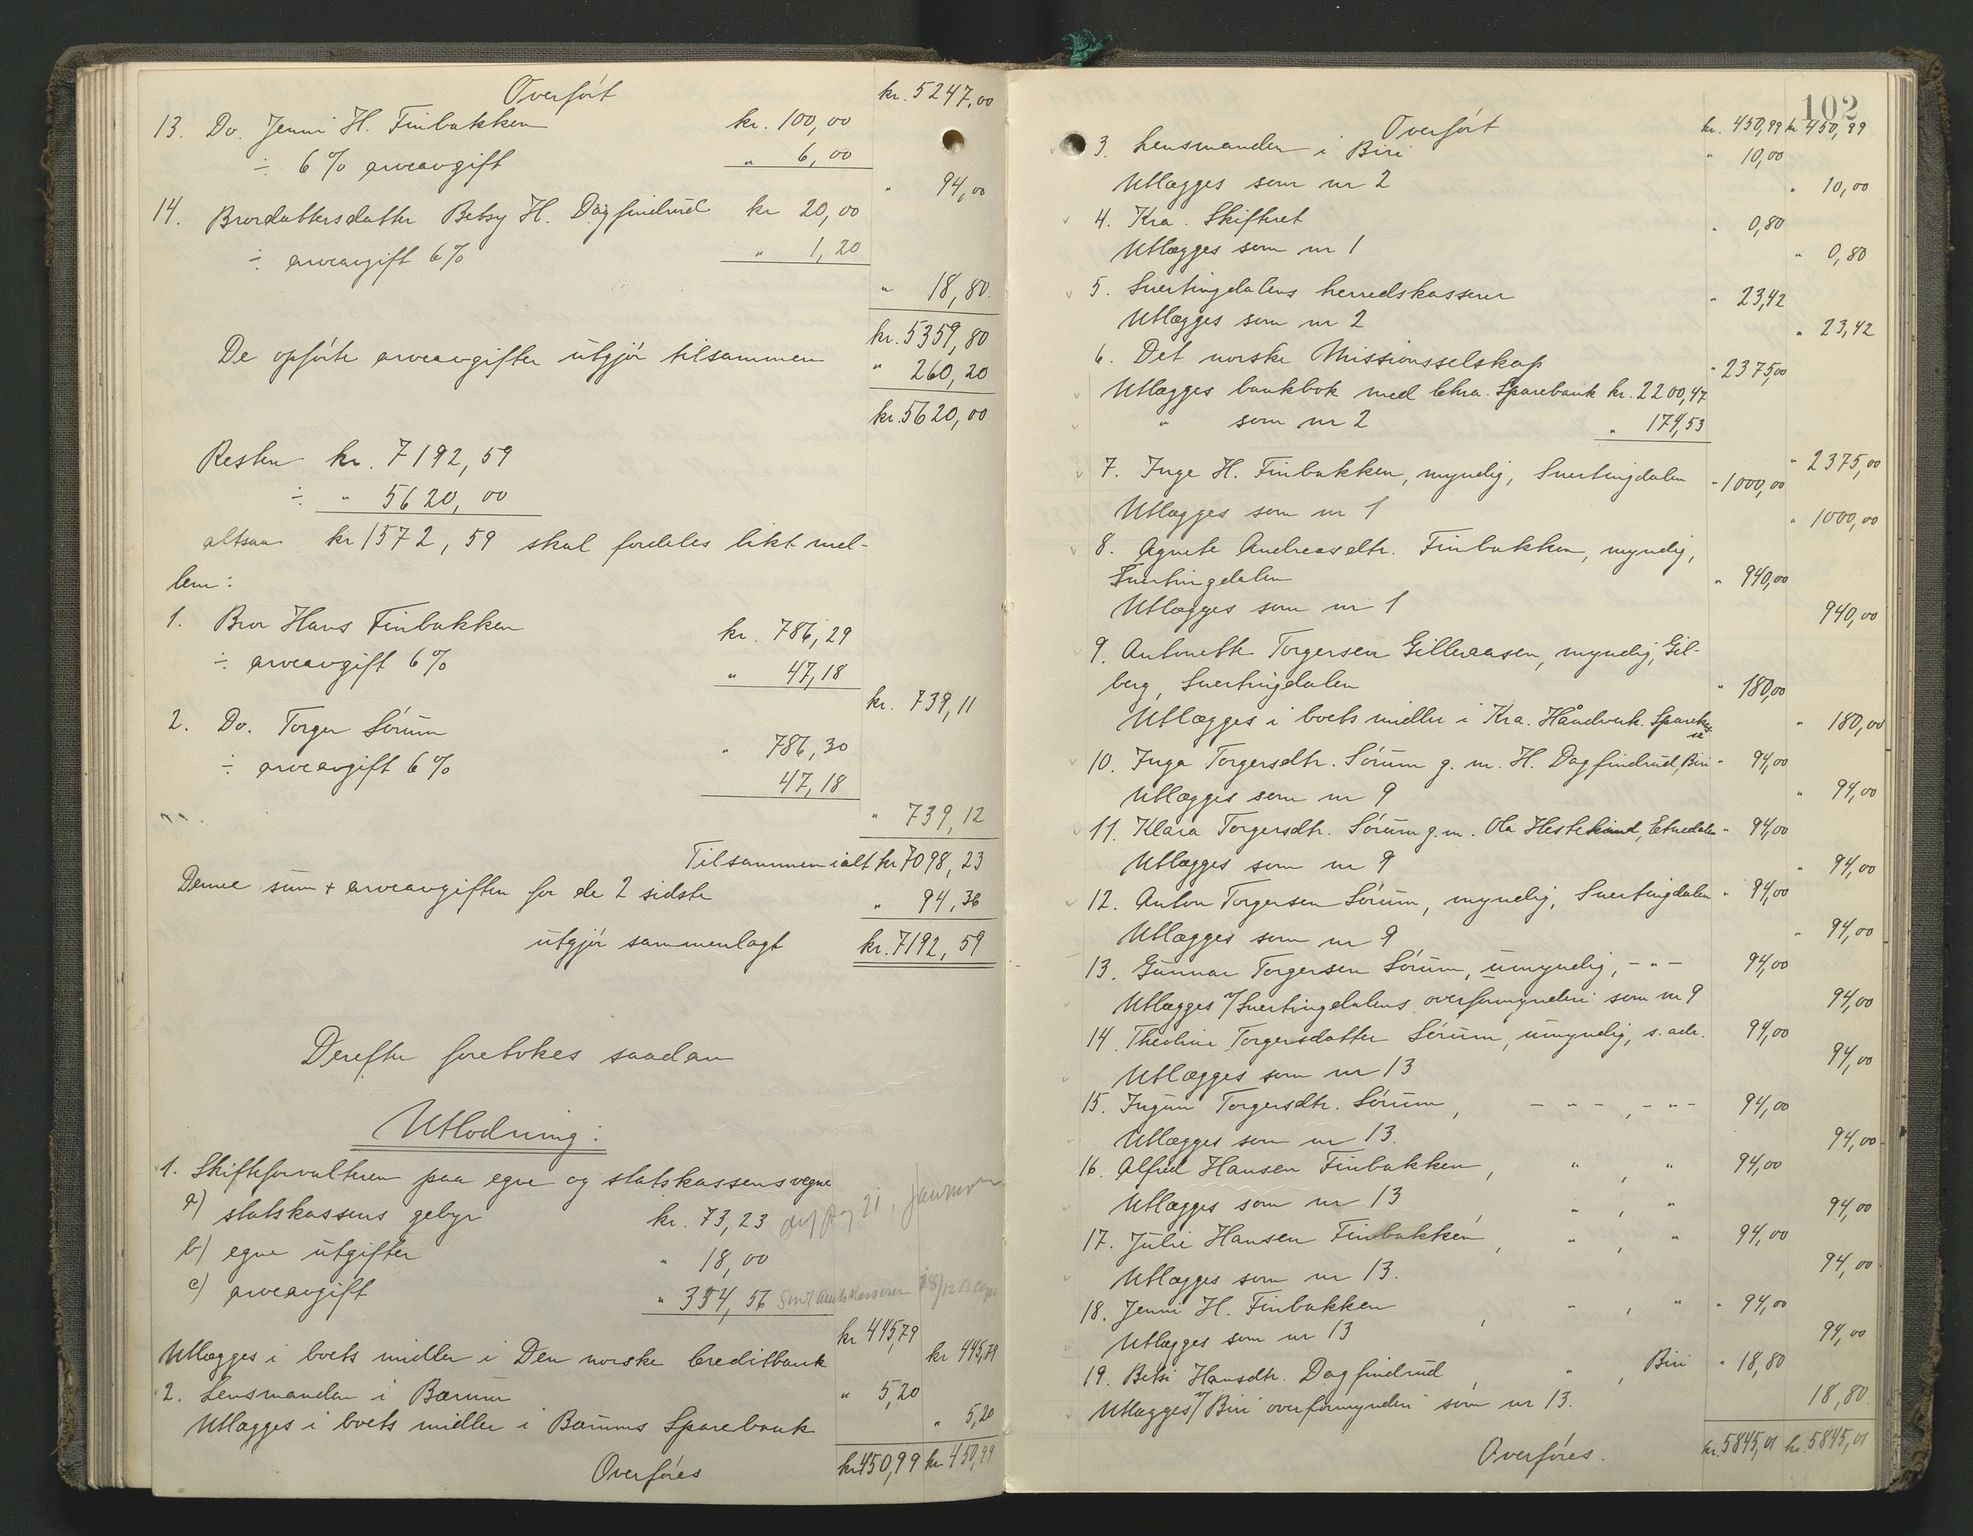 Overført kr. 5247,00
13. Do. Jenni H. Finbakken kr. 100,00
÷ 6% arveavgift " 6,00
" 94,00
14. Brordattersdatter Betsy H. Dagfindrud kr 20,00
÷ arveavgift 6% " 1,20
" 18,80.
kr. 5359,80
De opførte arveavgifter utgjør tilsammen " 260,20
kr. 5620,00
Resten kr. 7192,59
÷ " 5620,00
altsaa kr 1572,59 skal fordeles likt mel-
lem:
1. Bror Hans Finbakken kr. 786,29
÷ arveavgift 6% " 47,18
kr. 739,11
2. Do. Torger Sørum " 786,30
÷ arveavgift 6% 47,18
" 739,12
Tilsammen ialt kr 7098,23
Denne sum + arveavgiften for de 2 sidste " 94,36
utgjør sammenlagt kr. 7192,59
Derefter foretokes saadan
Utlodning:
1. Skifteforvalteren paa egne og statskassens vegne
a) statskassens gebyr kr. 73,23
b) egne utgifter " 18,00
c) arveavgift " 354,56
kr 445,79
Utlægges i boets midler i Den norske Creditbank kr 445,79
2. Lensmanden i Bærum " 5,20
Utlægges i boets midler i Bærums Sparebank " 5,20
Overføres kr 450,99 kr. 450,99
102
Overført kr. 450,99 kr 450,99
3. Lensmanden i Biri " 10,00
Utlægges som nr 2 " 10,00
4. Kra. Skifteret " 0,80
Utlægges som nr 1 " 0,80
5. Snertingdalens herredskasserer " 23,42
Utlægges som nr 2 " 23,42
6. Det norske Missionsselskap " 2375,00
Utlægges bankbok med Chra. Sparebank kr. 2200,47
" som nr 2 " 174,53
" 2375,00
7. Inge H. Finbakken, myndig, Snertingdalen " 1000,00
Utlægges som nr 1 " 1000,00
8. Agnete Andreasdtr. Finbakken, myndig,
Snertingdalen " 940,00
Utlægges som nr 1 940,00
9. Antonette Torgersen Gilleraasen, myndig, Gil-
berg, Snertingdalen " 180,00
Utlægges i boets midler i Kra. Håndverk. Sparekas-
se " 180,00
10. Inga Torgersdtr. Sørum g. m. H. Dagfindrud, Biri " 94,00
Utlægges som nr 9 " 94,00
11. Klara Torgersdtr. Sørum g. m. Ola Hestekind, Etnedalen " 94,00
Utlægges som nr 9 " 94,00
12. Anton Torgersen Sørum, myndig, Snertingdalen " 94,00
Utlægges som nr 9 " 94,00
13. Gunnar Torgersen Sørum, umyndig, - " - 94,00
Utlægges v/Snertingdalens overformynderi som nr 9 94,00
14. Theoline Torgersdatter Sørum, umyndig, s. adr. 94,00
Utlægges som nr 13 94,00
15. Ingun Torgersdtr. Sørum, - " - , - " - 94,00
Utlægges som nr 13. 94,00
16. Alfred Hansen Finbakken, " , " 94,00
Utlægges som nr 13 , " , " 94,00
17. Julie Hansen Finbakken, " , " 94,00
Utlægges som nr 13. 94,00
18. Jenni H. Finbakken , " , " " 94,00
Utlægges som nr 13 94,00
19. Betsi Hansdtr. Dagfindrud , " , Biri " 18,80
Utlægges v/Biri overformynderi som nr 13. 18,80
Overføres. kr. 5845,01 kr. 5845,01